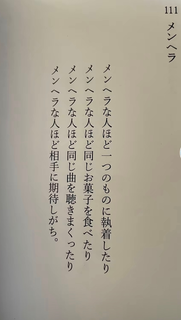 111
メンヘラ
メンヘラな人ほど一つのものに執着したり
メンヘラな人ほど同じお菓子を食べたり
メンヘラな人ほど同じ曲を聴きまくったり
メンヘラな人ほど相手に期待しがち。